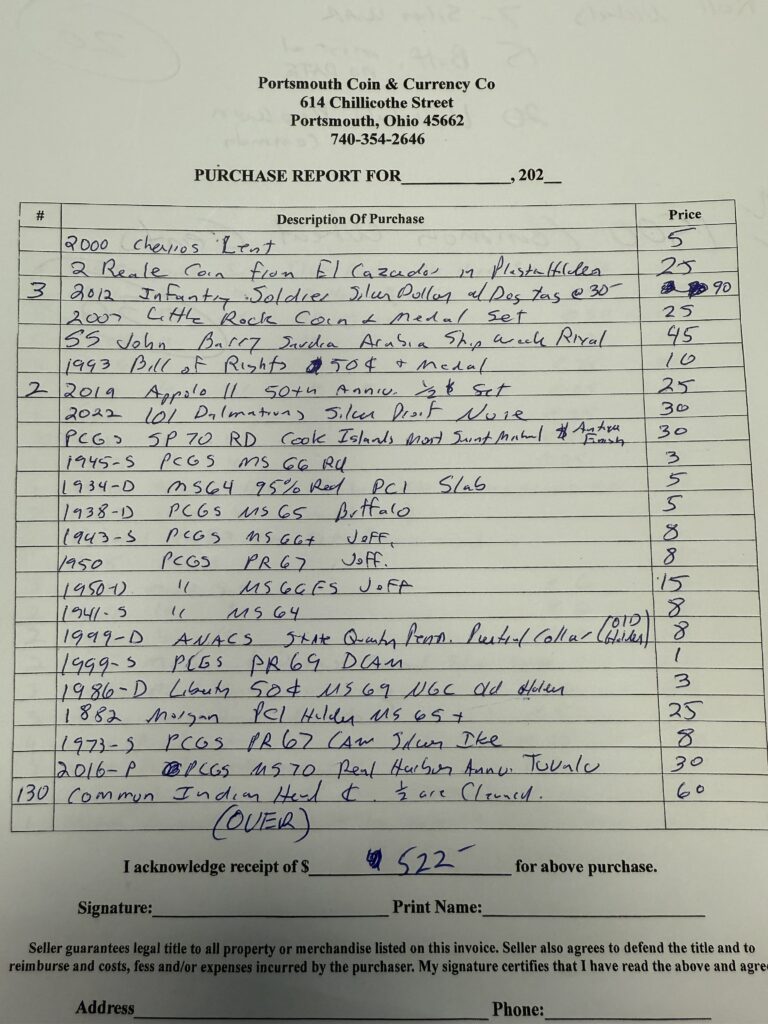 Portsmouth Coin & Currency Co
614 Chillicothe Street
Portsmouth, Ohio 45662
740-354-2646
PURCHASE REPORT FOR____________, 202__
# Description Of Purchase Price
2000 Cherios Cent 5
2 Reale Coin from El Cazador in Plastic Holder 25
3 2012 Infantry Soldier Silver Dollar w/ Dog Tag @ 30- 90
2007 Little Rock Coin & Medal Set 25
SS John Barry Saudia Arabia Ship Wreck Riyal 45
1993 Bill of Rights 50¢ + Medal 10
2 2019 Appolo 11 50th Anniv. ½ $ Set 25
2022 101 Dalmations Silver Proof Niue 30
PCGS SP 70 RD Cook Islands Mont Saint Michel $ Antique Finish 30
1945-S PCGS MS 66 Rd 3
1934-D MS64 95% Red PCI Slab 5
1938-D PCGS MS 65 Buffalo 5
1943-S PCGS MS 66+ Jeff. 8
1950 PCGS PR 67 Jeff. 8
1950-D " MS 66 FS Jeff 15
1941-S " MS 64 8
1999-D ANACS State Quarter Penn. Partial Collar (Old Holder) 8
1999-S PCGS PR 69 DCAM 1
1986-D Liberty 50¢ MS 69 NGC Old Holder 3
1882 Morgan PCI Holder MS 65+ 25
1973-S PCGS PR 67 CAM Silver Ike 8
2016-P PCGS MS 70 Pearl Harbor Anniv. Tuvalu 30
130 Common Indian Head ¢. ½ are Cleaned. 60
(OVER)
I acknowledge receipt of $ 522- for above purchase.
Signature:____________ Print Name:____________
Seller guarantees legal title to all property or merchandise listed on this invoice. Seller also agrees to defend the title and to
reimburse and costs, fess and/or expenses incurred by the purchaser. My signature certifies that I have read the above and agre
Address____________ Phone:____________